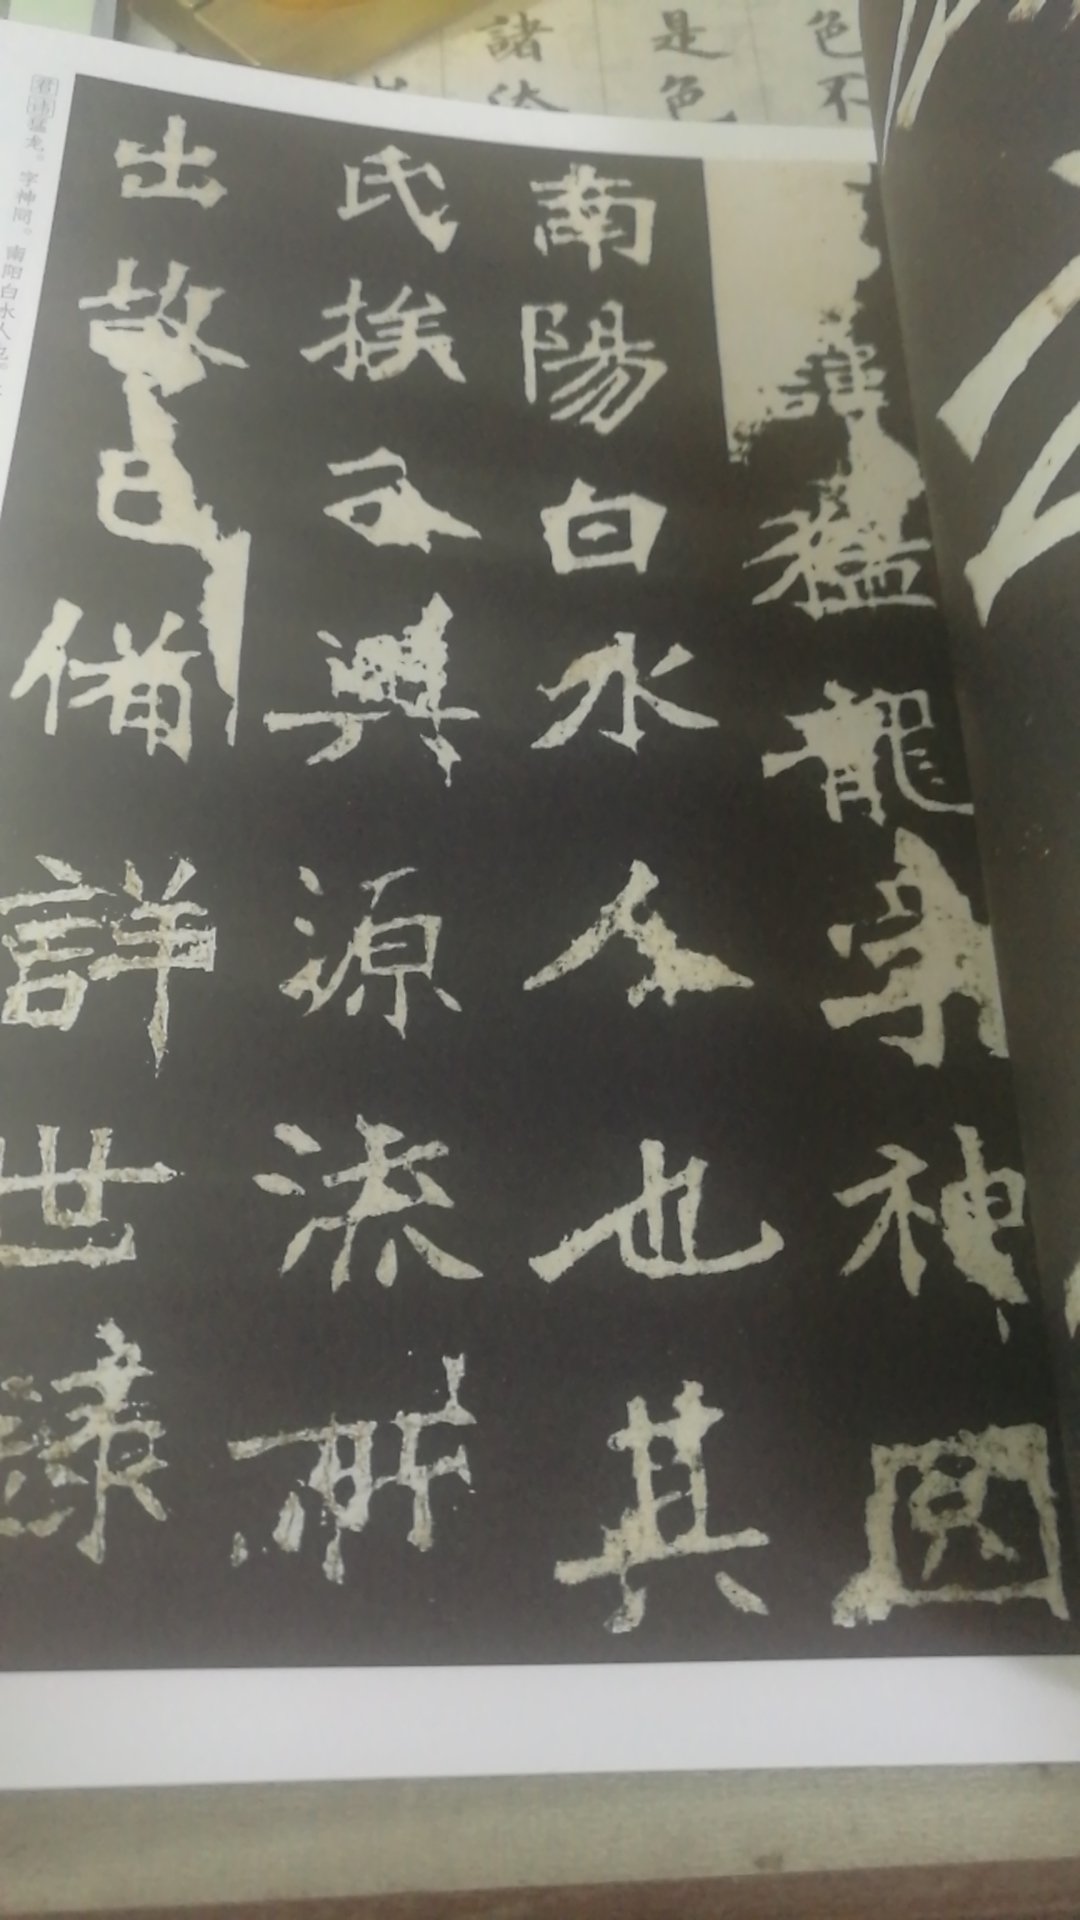 色不
是色
諸
諱猛龍字神囧
南陽白水人也其
氏族分興源流所
出故已備詳世錄
君讳猛龙。字神冏。南阳白水人也。